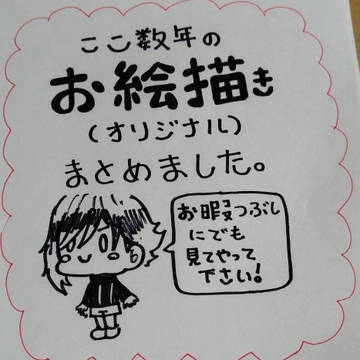 ここ数年の
お絵描き
(オリジナル)
まとめました。
お暇つぶし
にでも
見てやって
下さい!